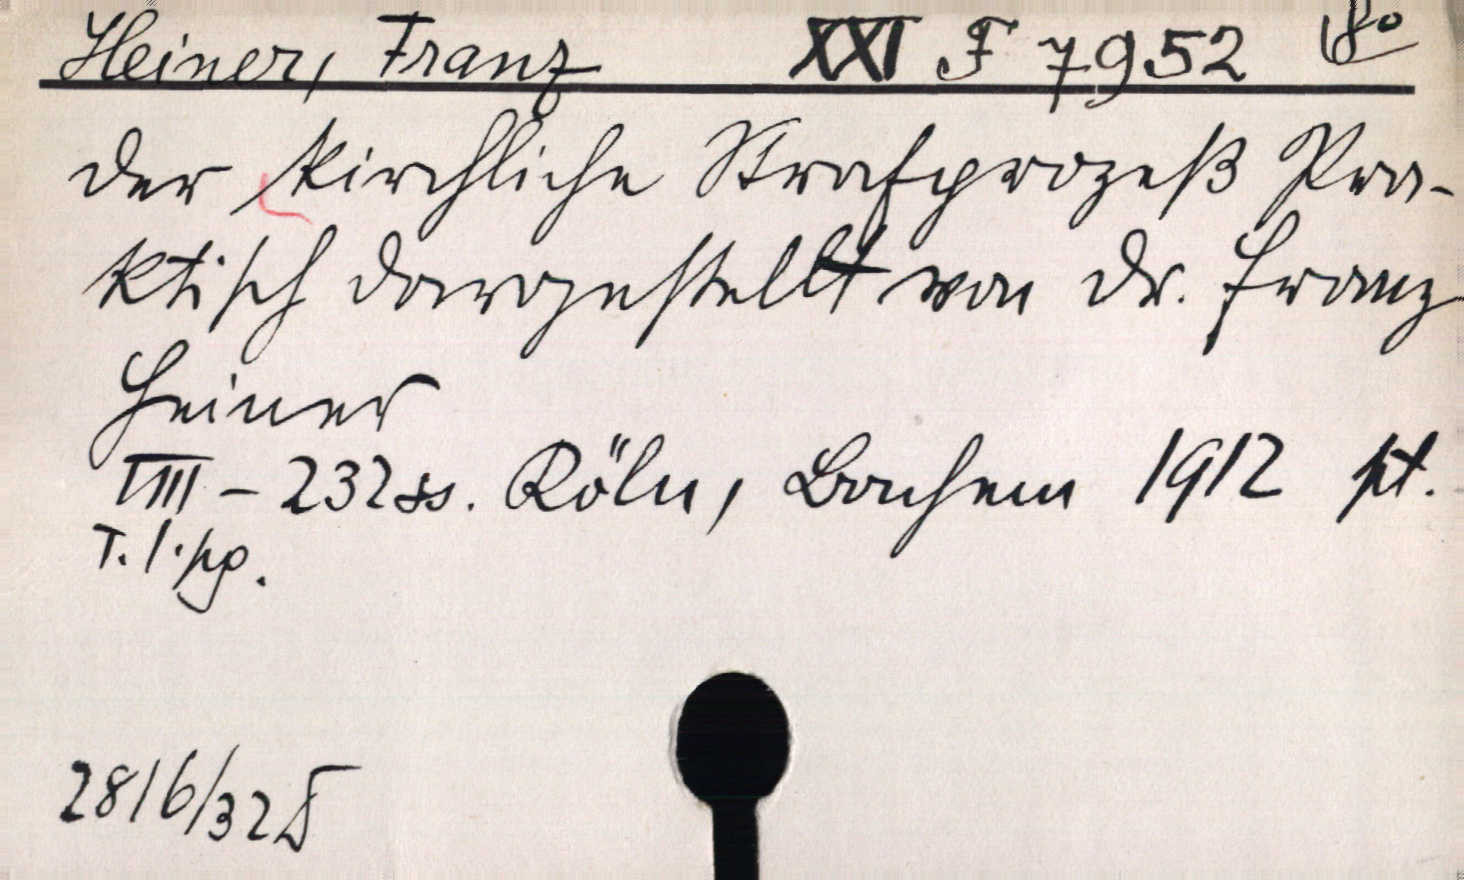 Heiner, Franz XXI F 7952 8o
Der kirchliche Strafprozeß Pra-
ktisch dargestellt von Dr. Franz
Heiner
VIII - 232 ss. Köln, Bachem 1912 pt.
T. l. pp.
2816/32